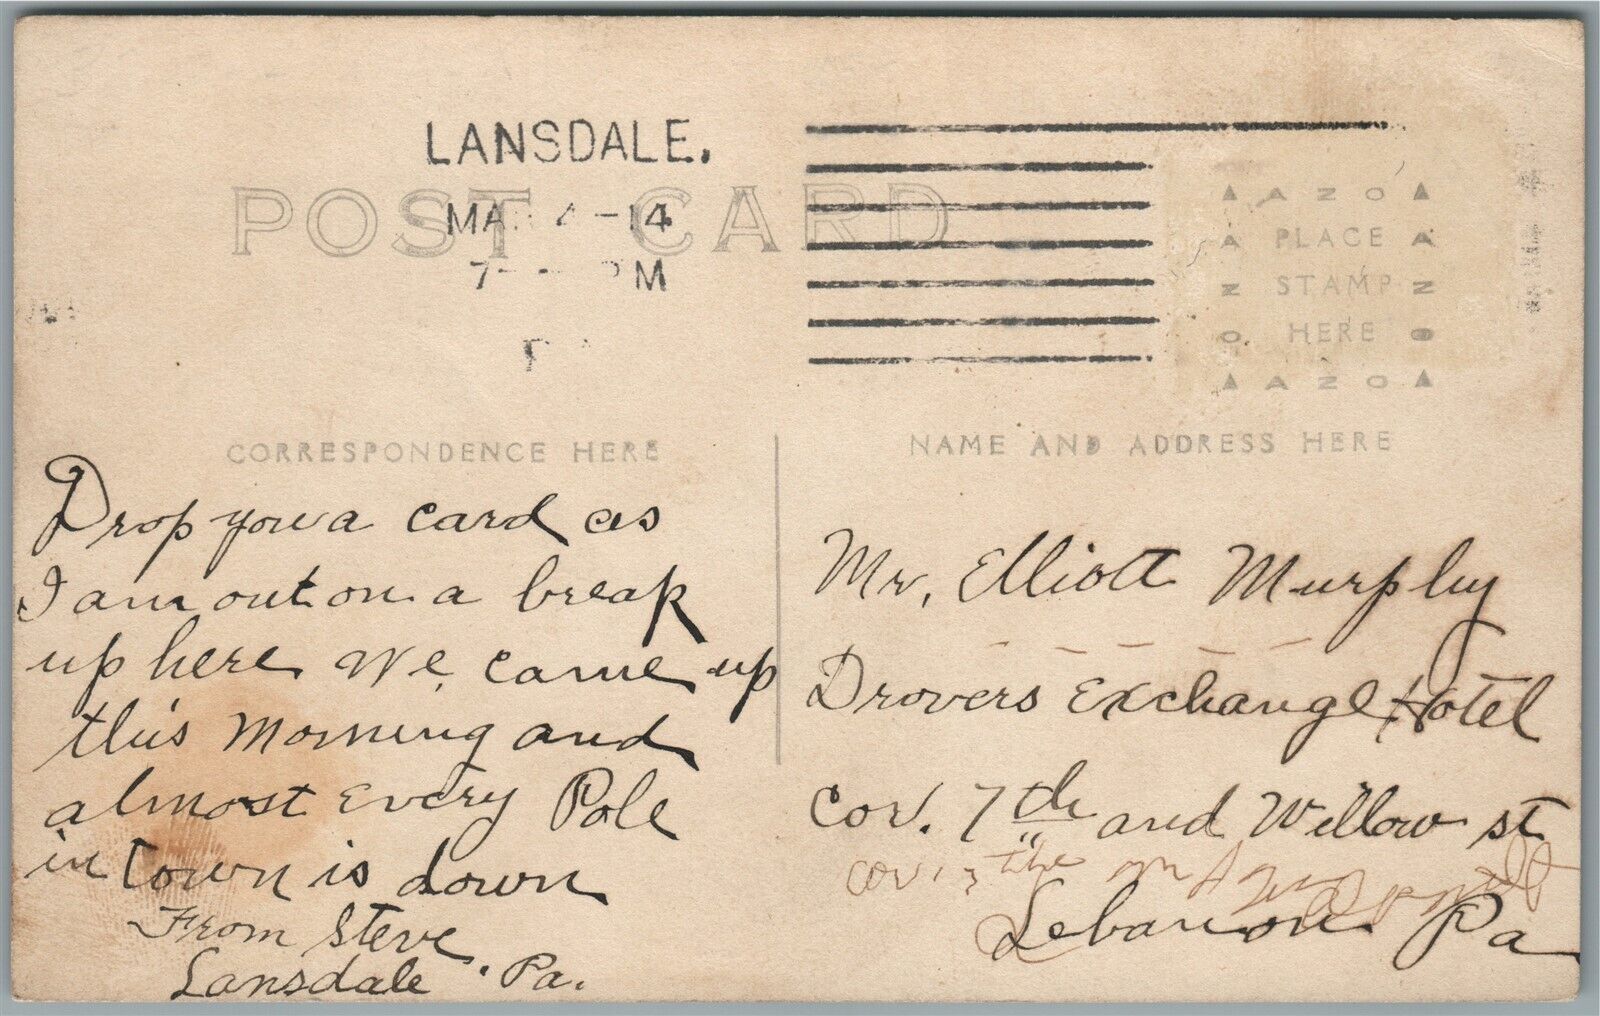 LANSDALE.
POST CARD
MA 4-14
7 PM
AZO
PLACE
STAMP
HERE
AZO
CORRESPONDENCE HERE
NAME AND ADDRESS HERE
Drop you a card as
I am out on a break
up here We came up
this morning and
almost Every Pole
in town is down
From Steve
Lansdale, Pa.
Mr. Elliott Murphy
Drovers Exchange Hotel
Cor. 7th and Willow st
Cor. the
Lebanon Pa